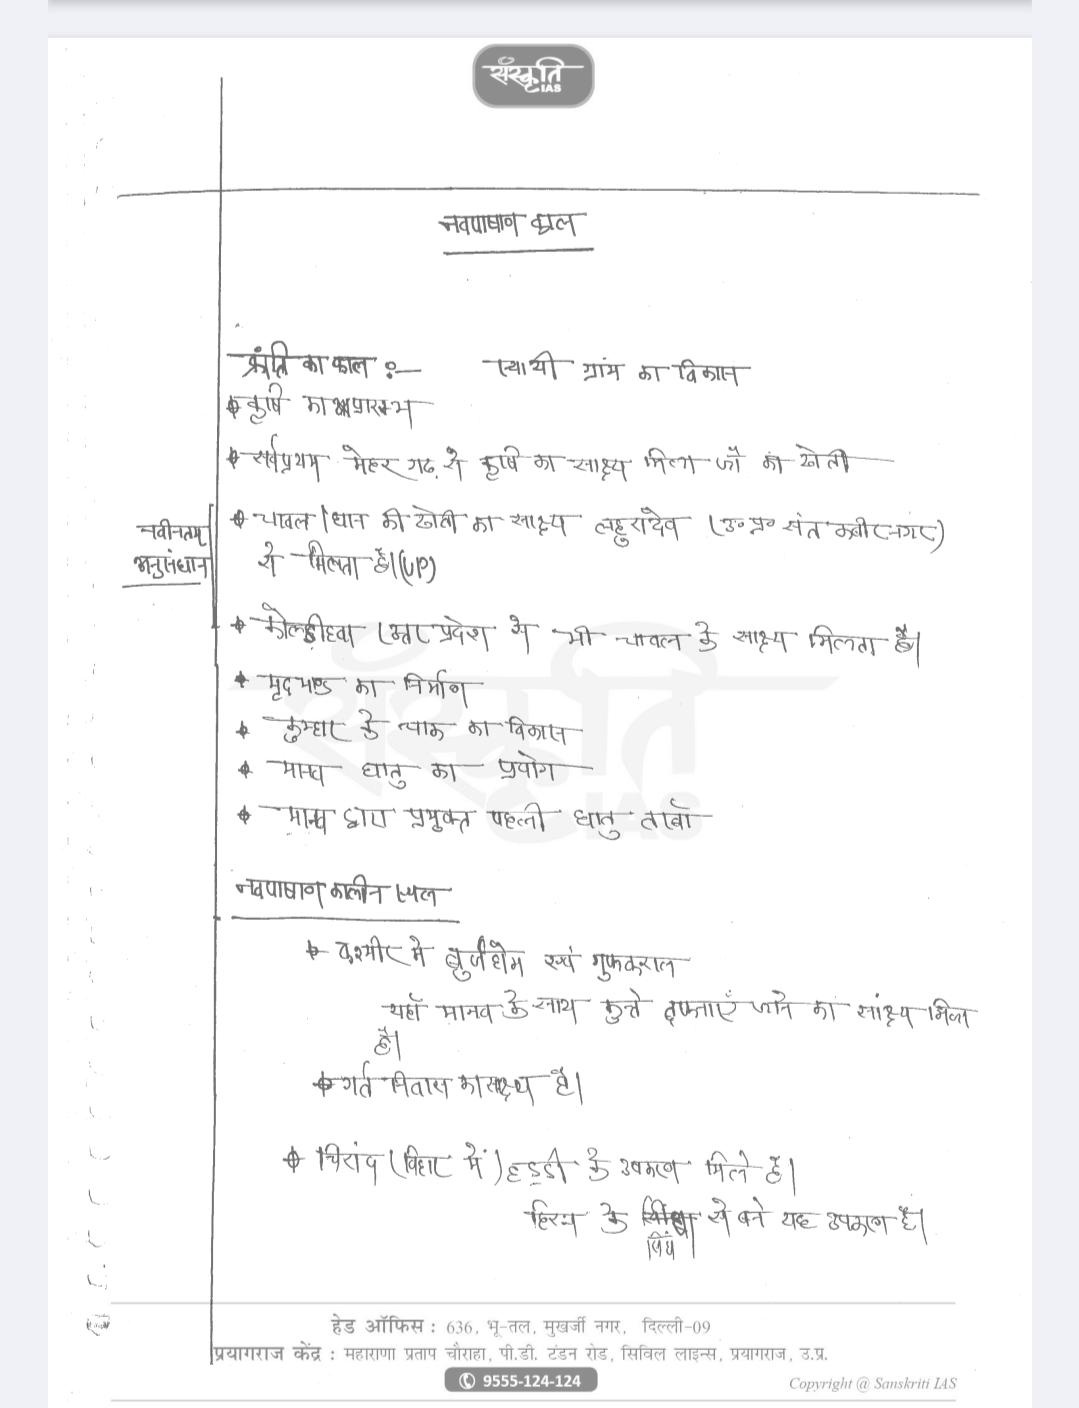 संस्कृति
IAS
नवपाषाण काल
क्रांति का काल :— स्थायी ग्राम का विकास
कृषि का प्रारम्भ
सर्वप्रथम मेहरगढ़ से कृषि का साक्ष्य मिला जौ की खेती
नवीनतम् अनुसंधान
चावल / धान की खेती का साक्ष्य लहुरादेव (उ॰ प्र॰ संत कबीरनगर)
से मिलता है।(UP)
कोल्डीहवा (उत्तर प्रदेश से भी चावल के साक्ष्य मिलता है।
मृदभाण्ड का निर्माण
कुम्हार के चाक का विकास
मानव धातु का प्रयोग
मानव द्वारा प्रयुक्त पहली धातु तांबाँ
संस्कृति
IAS
नवपाषाण कालीन स्थल
कश्मीर में बुर्जहोम एवं गुफकराल
यहाँ मानव के साथ कुत्ते दफनाएँ जाने का सांक्ष्य मिला
है।
गर्त निवास का साक्ष्य है।
चिरांद (बिहार में) हड्डी के उपकरण मिले है।
हिरन के सिंघ से बने यह उपकरण है।
हेड ऑफिस : 636, भू-तल, मुखर्जी नगर, दिल्ली-09
प्रयागराज केंद्र : महाराणा प्रताप चौराहा, पी.डी. टंडन रोड, सिविल लाइन्स, प्रयागराज, उ.प्र.
9555-124-124
Copyright @ Sanskriti IAS